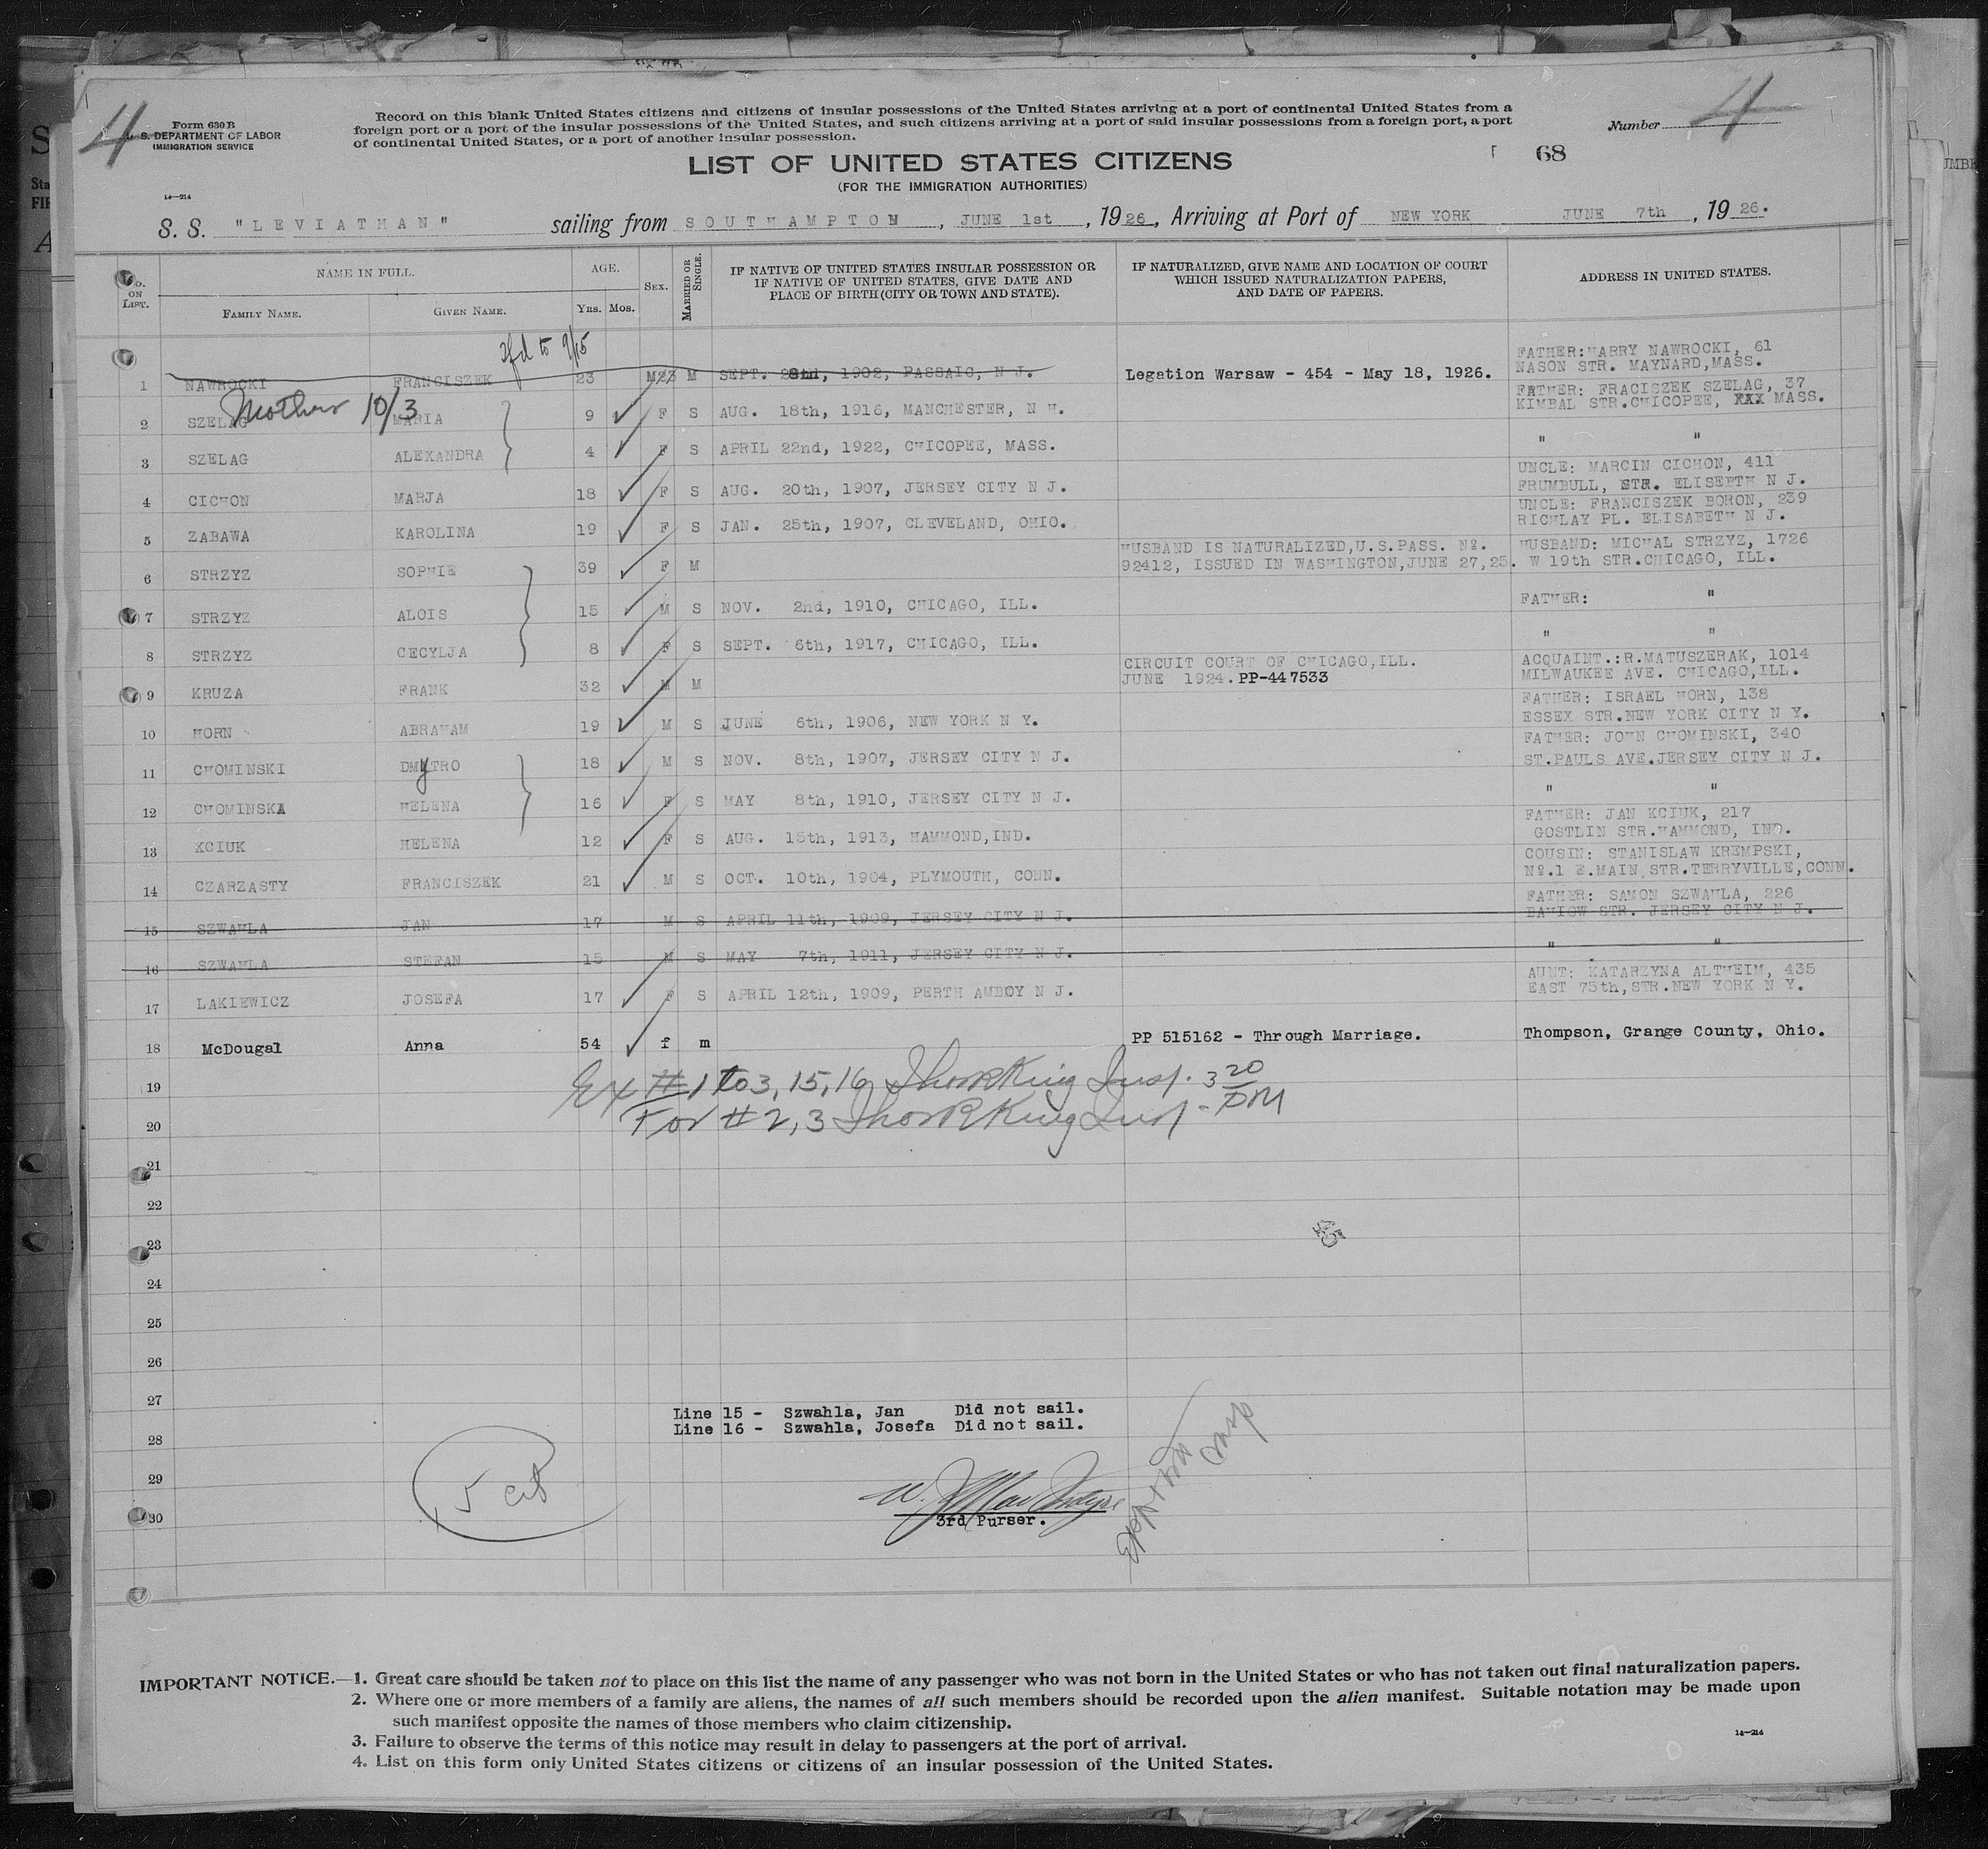 4
Form 630 B
U. S. DEPARTMENT OF LABOR
IMMIGRATION SERVICE
14—214
Record on this blank United States citizens and citizens of insular possessions of the United States arriving at a port of continental United States from a
foreign port or a port of the insular possessions of the United States, and such citizens arriving at a port of said insular possessions from a foreign port, a port
of continental United States, or a port of another insular possession.
Number 4
LIST OF UNITED STATES CITIZENS
68
(FOR THE IMMIGRATION AUTHORITIES)
S. S. "LEVIATHAN" sailing from SOUTHAMPTON, JUNE 1st, 1926, Arriving at Port of NEW YORK JUNE 7th, 1926.
No. ON LIST. NAME IN FULL. FAMILY NAME. GIVEN NAME. AGE. YRS. MOS. SEX. MARRIED OR SINGLE. IF NATIVE OF UNITED STATES INSULAR POSSESSION OR IF NATIVE OF UNITED STATES, GIVE DATE AND PLACE OF BIRTH (CITY OR TOWN AND STATE). IF NATURALIZED, GIVE NAME AND LOCATION OF COURT WHICH ISSUED NATURALIZATION PAPERS, AND DATE OF PAPERS. ADDRESS IN UNITED STATES.
2fd to 9/15
1 NAWROCKI FRANCISZEK 23 M23 M SEPT. 28nd, 1902, PASSAIC, N J. Legation Warsaw - 454 - May 18, 1926. FATHER:HARRY NAWROCKI, 61 NASON STR. MAYNARD,MASS.
Mother 10/3
2 SZELAG MARIA 9 F S AUG. 18th, 1916, MANCHESTER, N H. FATHER: FRACISZEK SZELAG, 37 KIMBAL STR.CHICOPEE, XXX MASS.
3 SZELAG ALEXANDRA 4 F S APRIL 22nd, 1922, CHICOPEE, MASS. " "
4 CICHON MARJA 18 F S AUG. 20th, 1907, JERSEY CITY N J. UNCLE: MARCIN CICHON, 411 FRUMBULL, STR. ELISEBTH N J.
5 ZABAWA KAROLINA 19 F S JAN. 25th, 1907, CLEVELAND, OHIO. UNCLE: FRANCISZEK BORON, 239 RICHLAY PL. ELISABETH N J.
6 STRZYZ SOPHIE 39 F M HUSBAND IS NATURALIZED,U.S.PASS. Nº. 92412, ISSUED IN WASHINGTON,JUNE 27,25. HUSBAND: MICHAL STRZYZ, 1726 W 19th STR.CHICAGO, ILL.
7 STRZYZ ALOIS 15 M S NOV. 2nd, 1910, CHICAGO, ILL. FATHER: "
8 STRZYZ CECYLJA 8 F S SEPT. 6th, 1917, CHICAGO, ILL. " "
9 KRUZA FRANK 32 M M CIRCUIT COURT OF CHICAGO,ILL. JUNE 1924. PP-447533 ACQUAINT.:R.MATUSZERAK, 1014 MILWAUKEE AVE. CHICAGO,ILL.
10 HORN ABRAHAM 19 M S JUNE 6th, 1906, NEW YORK N Y. FATHER: ISRAEL HORN, 138 ESSEX STR.NEW YORK CITY N Y.
11 CHOMINSKI DMYTRO 18 M S NOV. 8th, 1907, JERSEY CITY N J. FATHER: JOHN CHOMINSKI, 340 ST.PAULS AVE.JERSEY CITY N J.
12 CHOMINSKA HELENA 16 F S MAY 8th, 1910, JERSEY CITY N J. " "
13 KCIUK HELENA 12 F S AUG. 15th, 1913, HAMMOND,IND. FATHER: JAN KCIUK, 217 GOSTLIN STR.HAMMOND, IND.
14 CZARZASTY FRANCISZEK 21 M S OCT. 10th, 1904, PLYMOUTH, CONN. COUSIN: STANISLAW KREMPSKI, Nº.1 E.MAIN STR.TERRYVILLE,CONN.
15 SZWAHLA JAN 17 M S APRIL 11th, 1909, JERSEY CITY N J. FATHER: SAMON SZWAHLA, 226 BAHIOW STR. JERSEY CITY N J.
16 SZWAHLA STEFAN 15 M S MAY 7th, 1911, JERSEY CITY N J. " "
17 LAKIEWICZ JOSEFA 17 F S APRIL 12th, 1909, PERTH AMBOY N J. AUNT: KATARZYNA ALTHEIM, 435 EAST 75th,STR.NEW YORK N Y.
18 McDougal Anna 54 f m PP 515162 - Through Marriage. Thompson, Grange County, Ohio.
19 Ex #1 to 3, 15, 16 Thos R King Insp. 3 20 PM
20 For #2, 3 Thos R King Insp
21
22
23
24
25
26
27
Line 15 - Szwahla, Jan Did not sail.
Line 16 - Szwahla, Josefa Did not sail.
28
29
30
5 cit
3rd Purser.
Insp
IMPORTANT NOTICE.—1. Great care should be taken not to place on this list the name of any passenger who was not born in the United States or who has not taken out final naturalization papers.
2. Where one or more members of a family are aliens, the names of all such members should be recorded upon the alien manifest. Suitable notation may be made upon
such manifest opposite the names of those members who claim citizenship.
3. Failure to observe the terms of this notice may result in delay to passengers at the port of arrival.
4. List on this form only United States citizens or citizens of an insular possession of the United States.
14—214